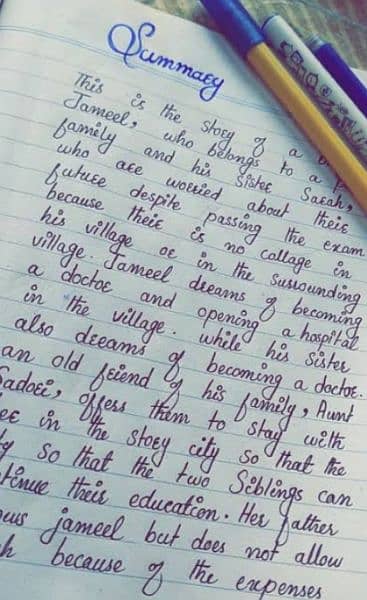 Summary
This is the story of a b
Jameel, who belongs to a p
family and his sister Sarah,
who are worried about their
future despite passing the exam
because their is no collage in
his village or in the surrounding
village. Jameel dreams of becoming
a doctor and opening a hospital
in the village. while his sister
also dreams of becoming a doctor.
an old friend of his family, Aunt
Sadori, offers them to stay with
er in the story city so that the
y so that the two Siblings can
tinue their education. Her father
ows jameel but does not allow
h because of the expenses